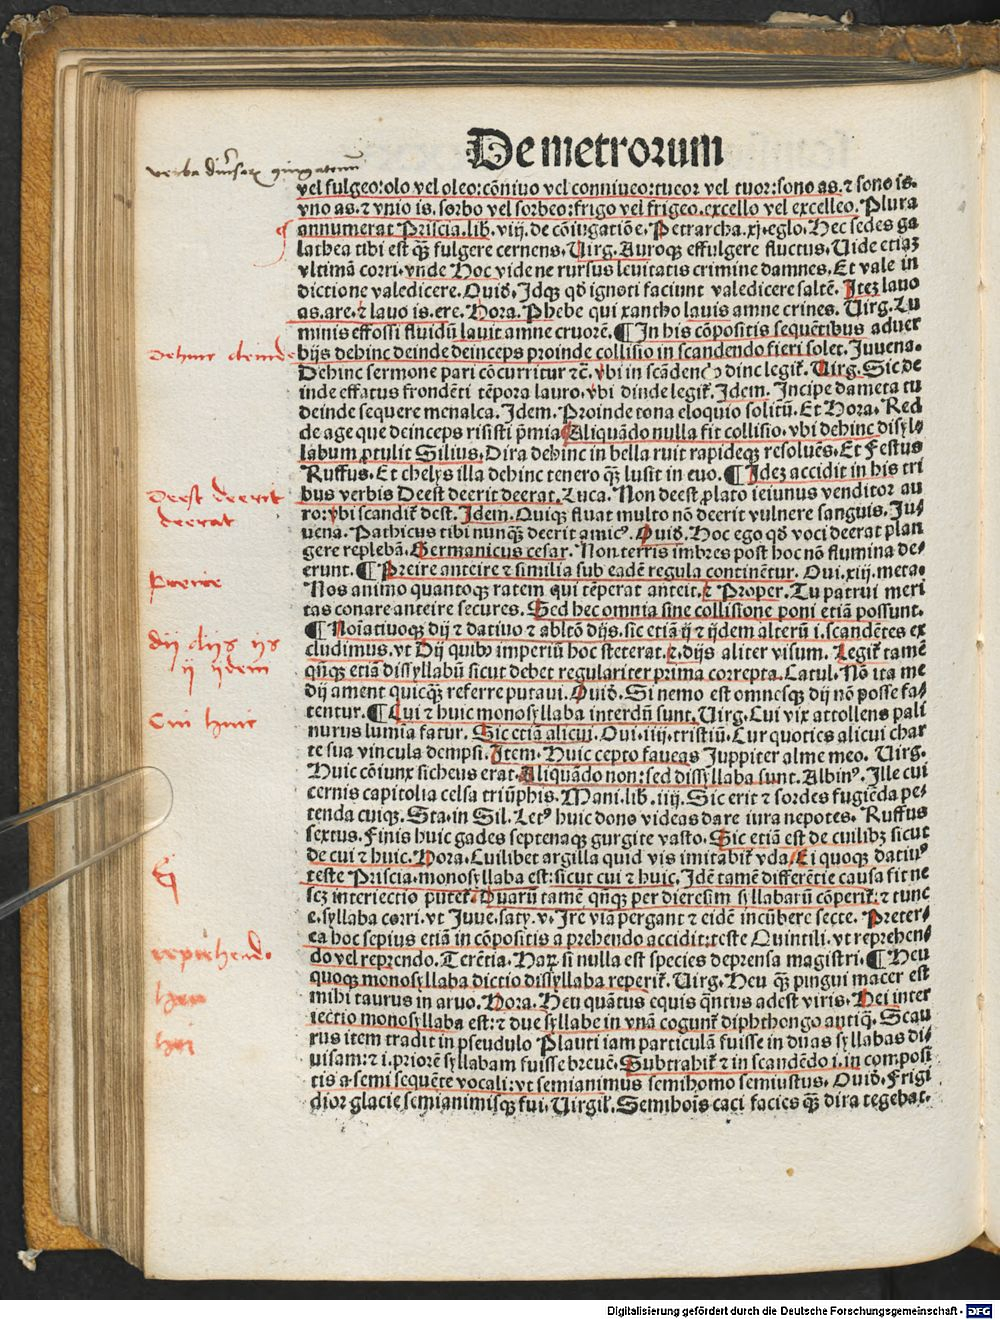 De metrorum
verba diuersarũ ↄiugationũ
vel fulgeo:olo vel oleo:cōniuo vel conniueo:tueor vel tuor:sono as.⁊ sono is.
vno as.⁊ vnio is. sorbo vel sorbeo:frigo vel frigeo.excello vel excelleo. Plura
annumerat Priscia.lib.viij.de cōiugatiōe. Petrarcha.xj.eglo. Hec sedes ga
lathea tibi est q̄ꝫ fulgere cernens. Uirg. Auroqꝫ effulgere fluctus. Uide etiaꝫ
vltimā corri.vnde Hoc vide ne rursus leuitatis crimine damnes. Et vale in
dictione valedicere. Ouid. Idqꝫ qd̄ ignoti faciunt valedicere saltē. Iteꝫ lauo
as.are.⁊ lauo is.ere. Hora. Phebe qui xantho lauis amne crines. Uirg. Lu
minis effossi fluidū lauit amne cruorē. ¶ In his cōpositis sequētibus aduer
Dehinc deinde
bijs dehinc deinde deinceps proinde collisio in scandendo fieri solet. Iuuena.
Dehinc sermone pari cōcurritur ⁊c̄. vbi in scādendo dinc legit᷑. Uirg. Sic de
inde effatus frondēti tēpora lauro. vbi dinde legit᷑. Idem. Incipe dameta tu
deinde sequere menalca. Idem. Proinde tona eloquio solitū. Et Hora. Red
de age que deinceps risisti p̄mia. Aliquādo nulla fit collisio. vbi dehinc disyl⸗
labum ꝓtulit Silius. Dira dehinc in bella ruit rapideqꝫ resoluēs. Et Festus
Ruffus. Et chelys illa dehinc tenero q̄ꝫ lusit in euo. ¶ Ideꝫ accidit in his tri
Deest deerit
deerat
bus verbis Deest deerit deerat. Luca. Non deest ꝓlato ieiunus venditor au
ro: vbi scandit᷑ dest. Idem. Quiqꝫ fluat multo nō deerit vulnere sanguis. Iu⸗
uena. Pathicus tibi nunqꝫ̄ deerit amicꝰ. Ouid. Hoc ego qd̄ voci deerat plan
gere replebā. Germanicus cesar. Non terris imbres post hoc nō flumina de⸗
Preire
erunt. ¶ Preire anteire ⁊ similia sub eadē regula continētur. Oui.xiij.meta.
Nos animo quantoqꝫ ratem qui tēperat anteit. ⁊ Proper. Tu patrui meri
tas conare anteire secures. Sed hec omnia sine collisione poni etiā possunt.
dij dijs ijs
ij ijdem
¶ Noīatiuoqꝫ dij ⁊ datiuo ⁊ abltō dijs. sic etiā ij ⁊ ijdem alterū i.scandētes ex
cludimus. vt Dij quibꝰ imperiū hoc steterat. ⁊. dijs aliter visum. Legit᷑ tamē
qn̄qꝫ etiā dissyllabū sicut debet regulariter prima correpta. Catul. Nō ita me
dij ament quicq̄ꝫ referre putaui. Ouid. Si nemo est omnesqꝫ dij nō posse fa⸗
Cui huic
tentur. ¶ Cui ⁊ huic monosyllaba interdū sunt. Uirg. Cui vix attollens pali
nurus lumia fatur. Sic etiā alicui. Oui.iiij.tristiū. Cur quoties alicui char
te sua vincula dempsi. Item. Huic cepto faueas Juppiter alme meo. Uirg.
Huic cōiunx sicheus erat. Aliquādo non: sed dissyllaba sunt. Albinꝰ. Ille cui
cernis capitolia celsa triūphis. Mani.lib.iiij. Sic erit ⁊ sordes fugiēda pe⸗
tenda cuiqꝫ. Sta.in Sil. Letꝰ huic dono videas dare iura nepotes. Ruffus
sextus. Finis huic gades septenaqꝫ gurgite vasto. Sic etiā est de cuilibꝫ sicut
Ei
de cui ⁊ huic. Hora. Cuilibet argilla quid vis imitabit᷑ vda. Ei quoqꝫ datiuꝰ
teste Priscia. monosyllaba est: sicut cui ⁊ huic. Idē tamē differētie causa fit ne
scꝫ interiectio putet᷑. Quarū tamē qn̄qꝫ per dieresim syllabarū cōperit᷑: ⁊ tunc
e.syllaba corri. vt Juue.saty.v. Ire viā pergant ⁊ eidē incūbere secte. Preter⸗
ea hoc sepius etiā in cōpositis a prehendo accidit: teste Quintili. vt reprehen⸗
reprehendo
do vel reprendo. Terētia. Harꝫ si nulla est species deprensa magistri. ¶ Heu
quoqꝫ monosyllaba dictio dissyllaba reperit᷑. Uirg. Heu q̄ꝫ pingui macer est
heu
mihi taurus in aruo. Hora. Heu quātus equis q̄ntus adest viris. Hei inter
hei
iectio monosyllaba est: ⁊ due syllabe in vnā cogunt᷑ diphthongo antiq̄. Scau
rus item tradit in pseudulo Plauti iam particulā fuisse in duas syllabas di⸗
uisam: ⁊ i.priorē syllabam fuisse breuē. Subtrahit᷑ ⁊ in scandēdo i.in composi
tis a semi sequēte vocali: vt semianimus semihomo semiustus. Ouid. Frigi
dior glacie semianimisqꝫ fui. Uirgil. Semihoīs caci facies q̄ꝫ dira tegebat.
Digitalisierung gefördert durch die Deutsche Forschungsgemeinschaft - DFG